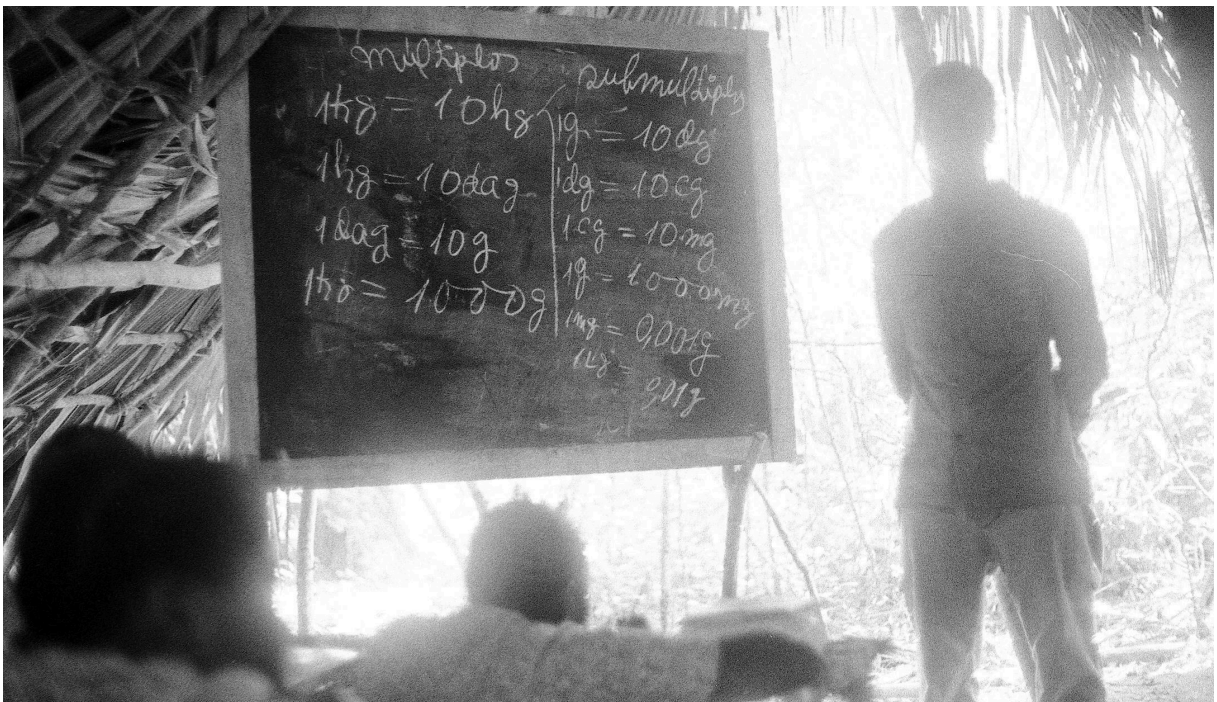 múltiplos
1kg = 10hg
1hg = 10dag
1dag = 10g
1kg = 1000g
submúltiplos
1g = 10dg
1dg = 10cg
1cg = 10mg
1g = 1000mg
1mg = 0,001g
0,01g